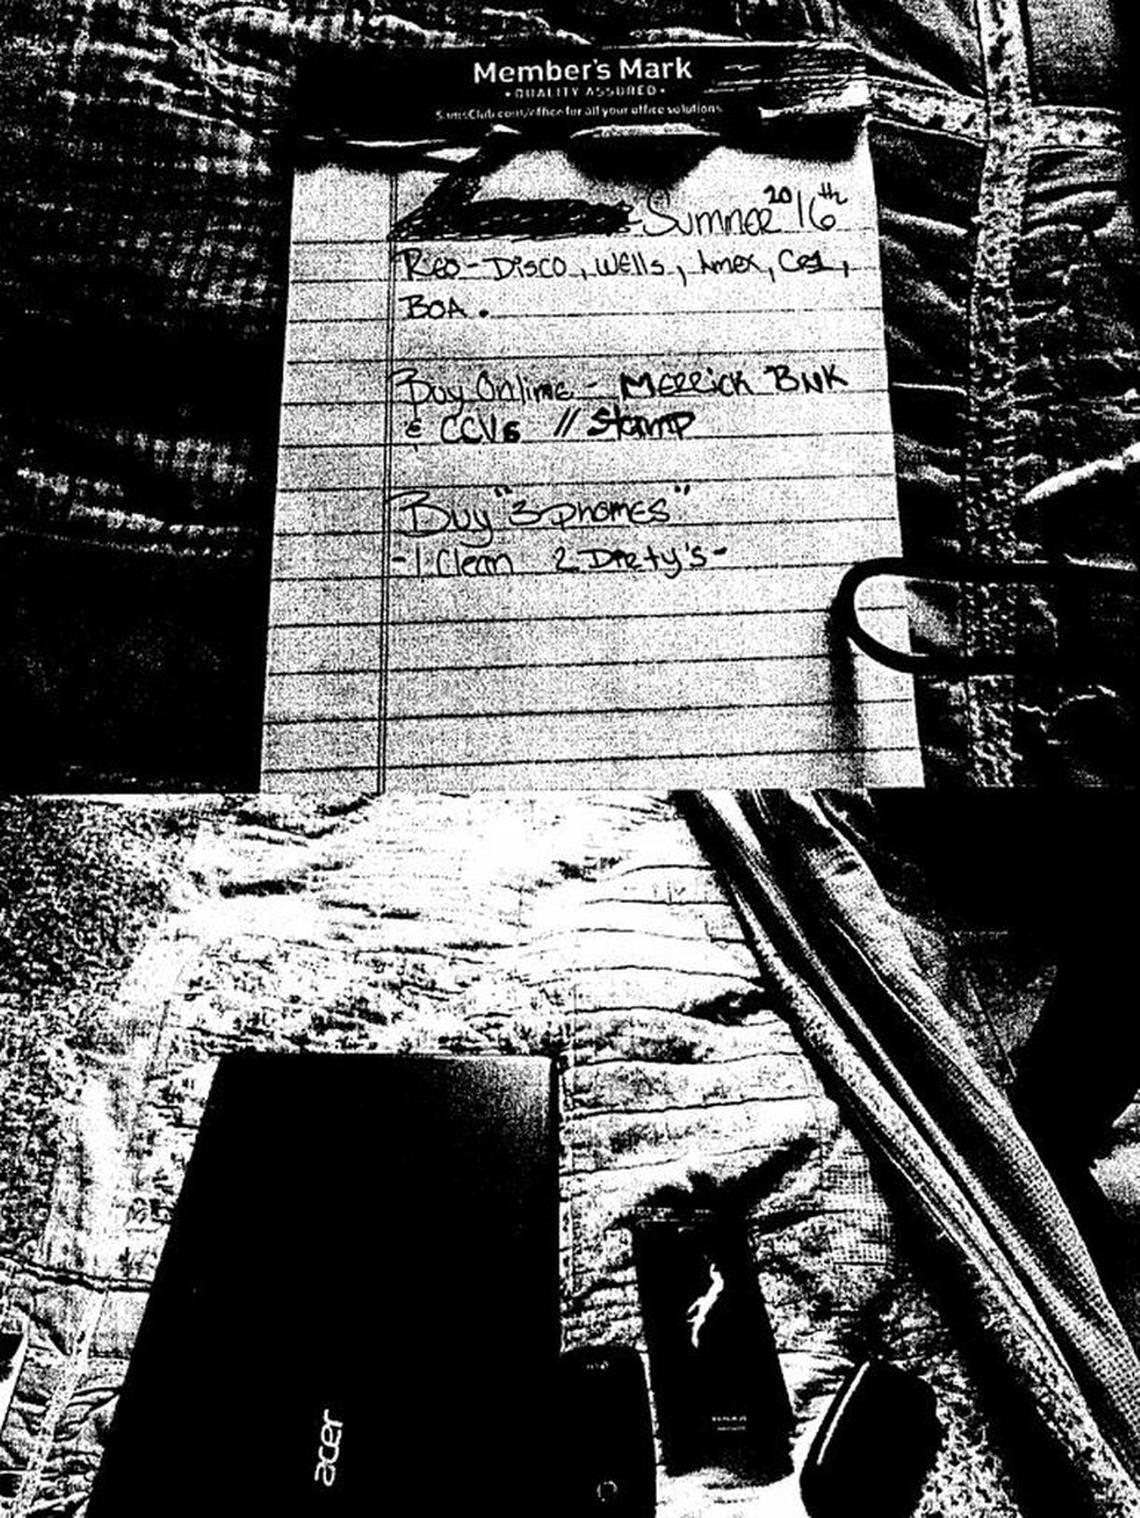 Member's Mark
• QUALITY ASSURED •
SamsClub.com/office for all your office solutions
Summer 2016th
Reo-Disco, Wells, Amex, Ces1,
BOA.
Buy Online - Merrick BNK
& CCVs // Stamp
Buy "3 phones"
-1 Clean 2 Dirty's-
acer